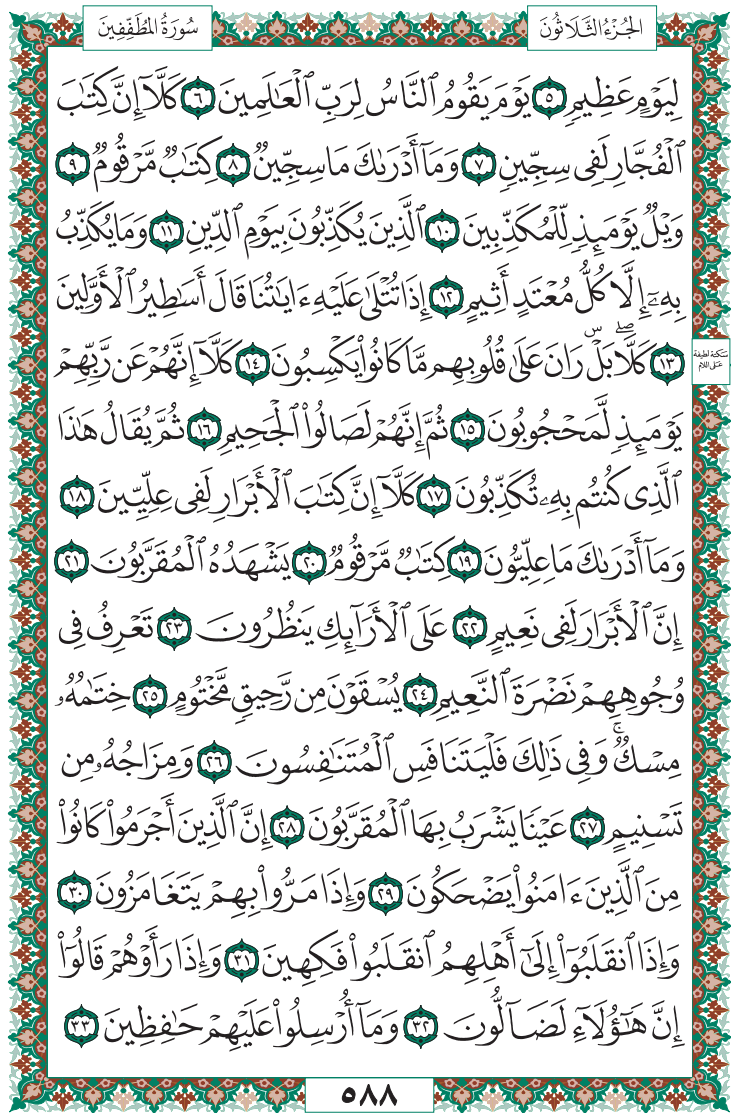 الجُزْءُ الثَّلَاثُونَ
سُورَةُ المُطَفِّفِينَ
لِيَوْمٍ عَظِيمٍ ٥ يَوْمَ يَقُومُ ٱلنَّاسُ لِرَبِّ ٱلْعَٰلَمِينَ ٦ كَلَّآ إِنَّ كِتَٰبَ
ٱلْفُجَّارِ لَفِى سِجِّينٍ ٧ وَمَآ أَدْرَىٰكَ مَا سِجِّينٌ ٨ كِتَٰبٌ مَّرْقُومٌ ٩
وَيْلٌ يَوْمَئِذٍ لِّلْمُكَذِّبِينَ ١٠ ٱلَّذِينَ يُكَذِّبُونَ بِيَوْمِ ٱلدِّينِ ١١ وَمَا يُكَذِّبُ
بِهِۦٓ إِلَّا كُلُّ مُعْتَدٍ أَثِيمٍ ١٢ إِذَا تُتْلَىٰ عَلَيْهِ ءَايَٰتُنَا قَالَ أَسَٰطِيرُ ٱلْأَوَّلِينَ
١٣ كَلَّاۖ بَلْۜ رَانَ عَلَىٰ قُلُوبِهِم مَّا كَانُوا۟ يَكْسِبُونَ ١٤ كَلَّآ إِنَّهُمْ عَن رَّبِّهِمْ
سَكتة لطيفة
عَلى اللام
يَوْمَئِذٍ لَّمَحْجُوبُونَ ١٥ ثُمَّ إِنَّهُمْ لَصَالُوا۟ ٱلْجَحِيمِ ١٦ ثُمَّ يُقَالُ هَٰذَا
ٱلَّذِى كُنتُم بِهِۦ تُكَذِّبُونَ ١٧ كَلَّآ إِنَّ كِتَٰبَ ٱلْأَبْرَارِ لَفِى عِلِّيِّينَ ١٨
وَمَآ أَدْرَىٰكَ مَا عِلِّيُّونَ ١٩ كِتَٰبٌ مَّرْقُومٌ ٢٠ يَشْهَدُهُ ٱلْمُقَرَّبُونَ ٢١
إِنَّ ٱلْأَبْرَارَ لَفِى نَعِيمٍ ٢٢ عَلَى ٱلْأَرَآئِكِ يَنظُرُونَ ٢٣ تَعْرِفُ فِى
وُجُوهِهِمْ نَضْرَةَ ٱلنَّعِيمِ ٢٤ يُسْقَوْنَ مِن رَّحِيقٍ مَّخْتُومٍ ٢٥ خِتَٰمُهُۥ
مِسْكٌۚ وَفِى ذَٰلِكَ فَلْيَتَنَافَسِ ٱلْمُتَنَٰفِسُونَ ٢٦ وَمِزَاجُهُۥ مِن
تَسْنِيمٍ ٢٧ عَيْنًا يَشْرَبُ بِهَا ٱلْمُقَرَّبُونَ ٢٨ إِنَّ ٱلَّذِينَ أَجْرَمُوا۟ كَانُوا۟
مِنَ ٱلَّذِينَ ءَامَنُوا۟ يَضْحَكُونَ ٢٩ وَإِذَا مَرُّوا۟ بِهِمْ يَتَغَامَزُونَ ٣٠
وَإِذَا ٱنقَلَبُوٓا۟ إِلَىٰٓ أَهْلِهِمُ ٱنقَلَبُوا۟ فَكِهِينَ ٣١ وَإِذَا رَأَوْهُمْ قَالُوٓا۟
إِنَّ هَٰٓؤُلَآءِ لَضَآلُّونَ ٣٢ وَمَآ أُرْسِلُوا۟ عَلَيْهِمْ حَٰفِظِينَ ٣٣
٥٨٨